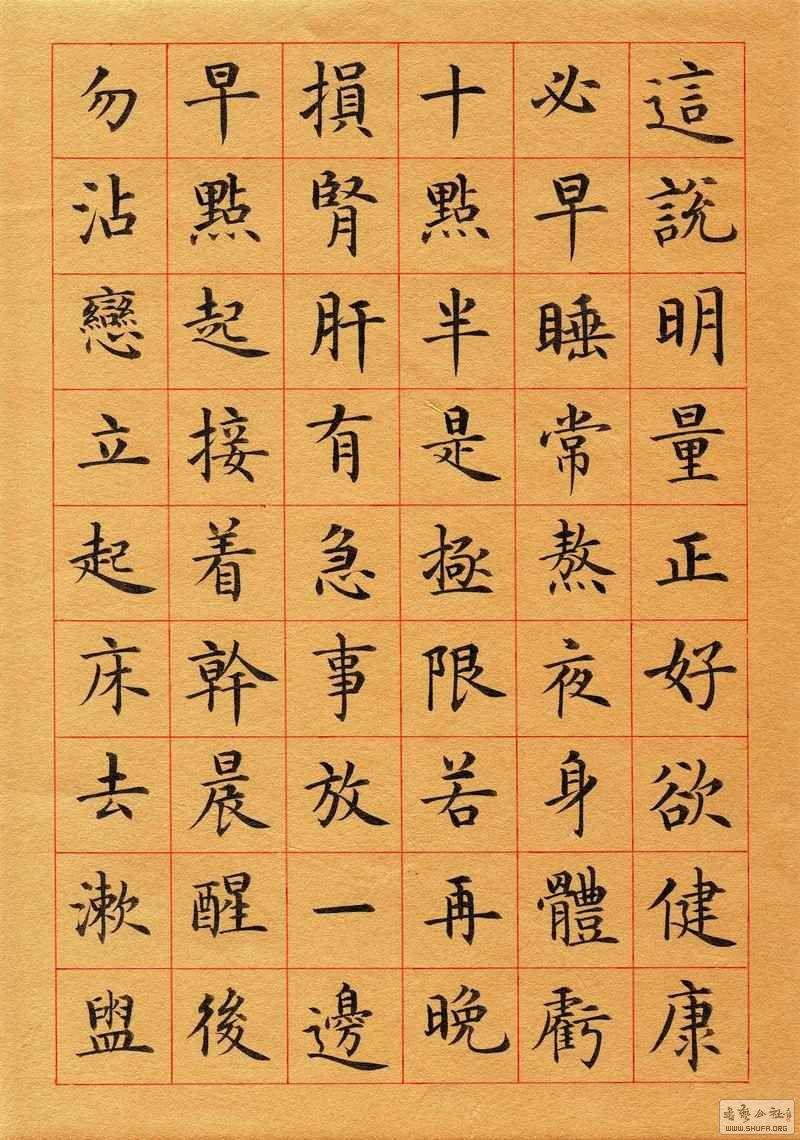 這說明量正好欲健康
必早睡常熬夜身體虧
十點半是極限若再晚
損腎肝有急事放一邊
早點起接着幹晨醒後
勿沾戀立起床去漱盥
WWW.SHUFA.ORG